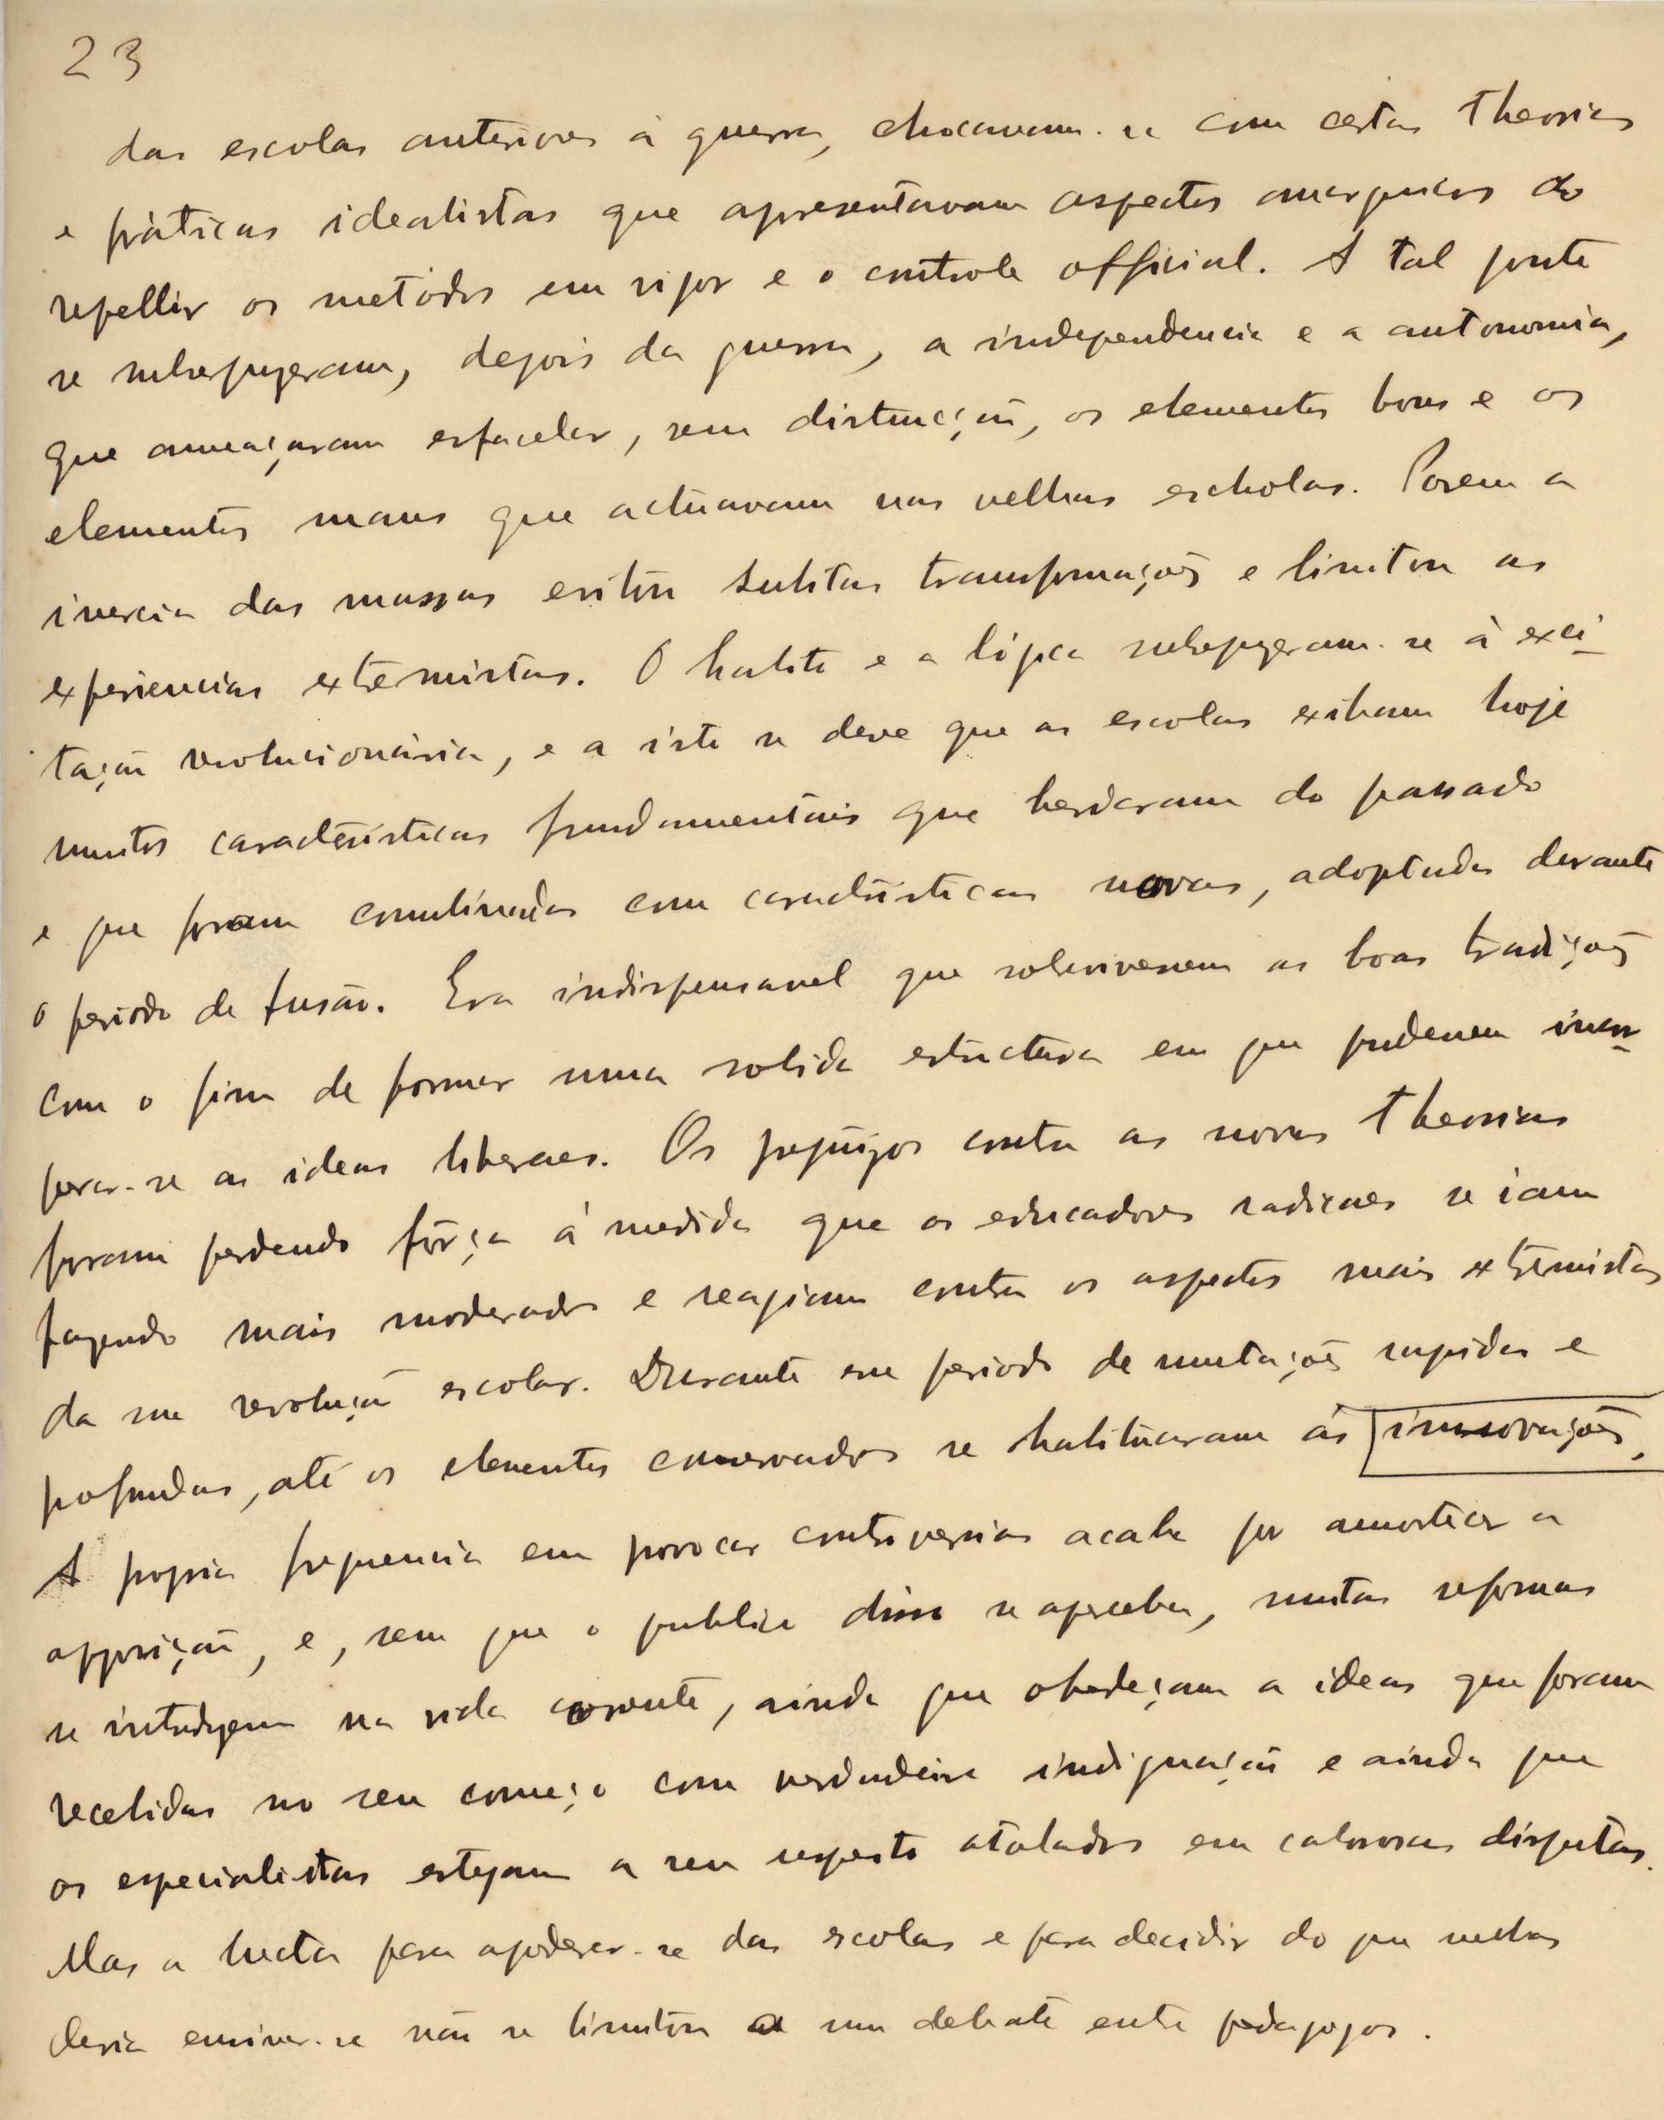 23
das escolas anteriores á guerra, chocavam-se com certas theorias
e práticas idealistas que apresentavam aspectos anarquicos ao
repellir os metódos em vigor e o controle official. A tal ponto
se sobrepuzeram, depois da guerra, a independencia e a autonomia,
que ameaçaram esfacelar, sem distincção, os elementos bons e os
elementos maus que actuavam nas velhas escholas. Porem a
inercia das massas evitou subitas transformações e limitou as
experiencias extremistas. O habito e a lógica sobrepuzeram-se á exci-
tação revolucionária, e a isto se deve que as escolas exibam hoje
muitos características fundamentais que herdaram do passado
e que foram combinadas com caracteristicas novas, adoptadas durante
o periodo de fusão. Era indispensavel que sobrevivessem as boas tradições
com o fim de formar uma solida estructura em que pudessem incor-
porar-se as ideas liberaes. Os prejuizos contra as novas theorias
foram perdendo fôrça á medida que os educadores radicaes se iam
fazendo mais moderados e reagiam contra os aspectos mais extremistas
da sua revolução escolar. Durante esse periodo de mutações rapidas e
profundas, até os elementos conservados se habituaram ás innovações.
A propria frequencia em provocar controversias acaba por amortecer a
opposição, e, sem que o publico disso se aperceba, muitas reformas
se introduzem na vida corrente, ainda que obedeçam a ideas que foram
recebidas no seu começo com verdadeira indignação e ainda que
os especialistas estejam a seu respeito atolados em calorosas disputas.
Mas a lucta para apoderar-se das escolas e para decidir do que nellas
devia ensinar-se não se limitou a um debate entre pedagogos.